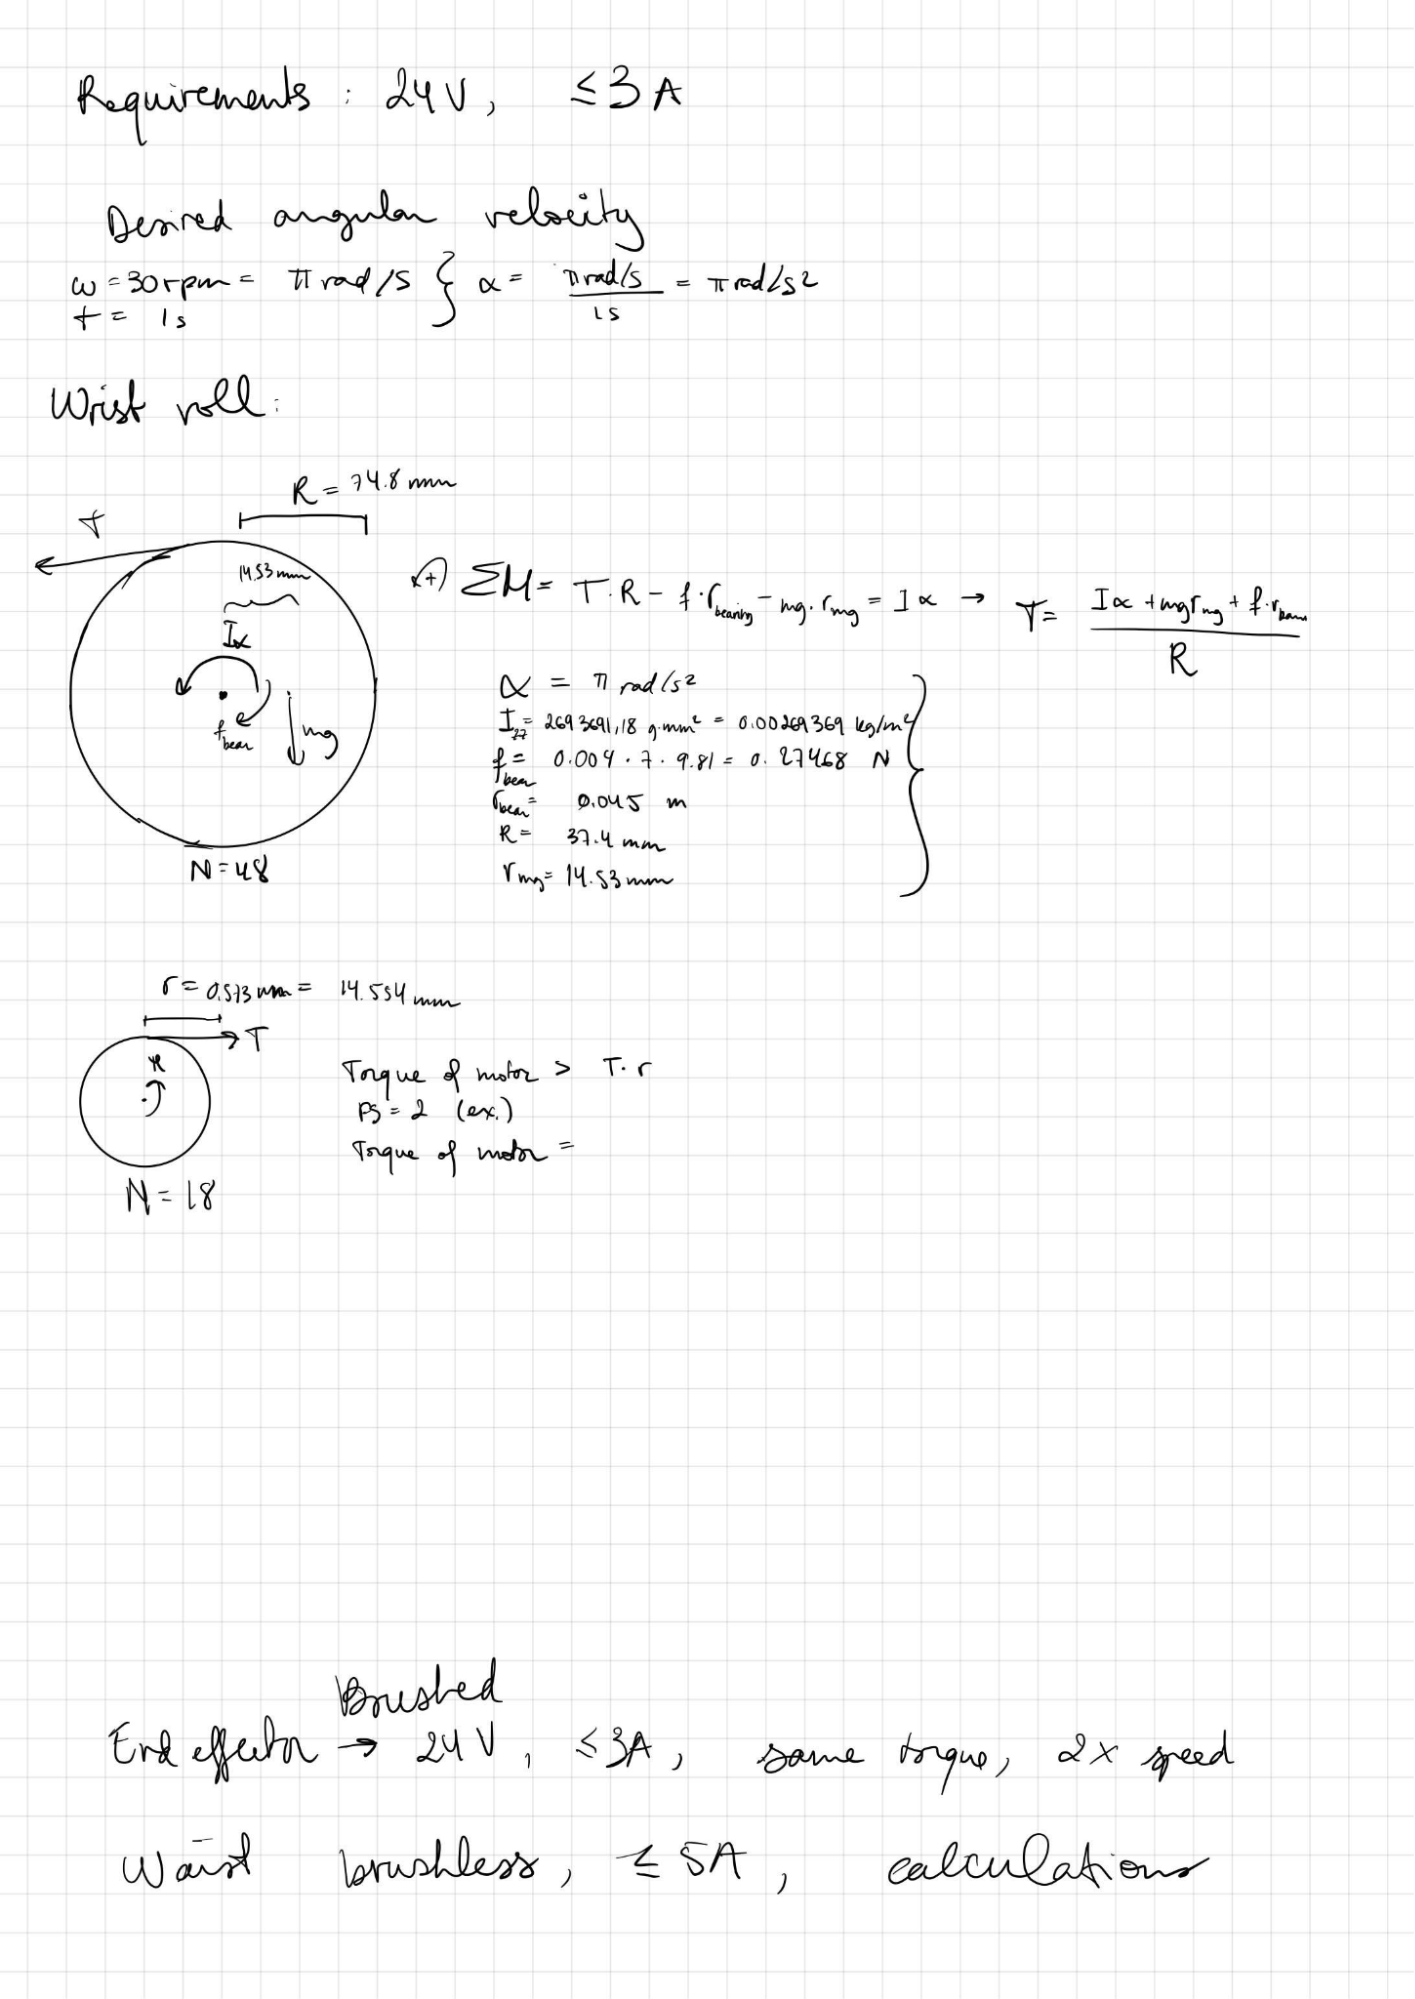 Requirements : 24V, ≤3A
Desired angular velocity
ω = 30rpm = π rad/s } α = π rad/s / 1s = π rad/s2
t = 1s
Wrist roll:
R = 74.8 mm
T
14.53mm
Iα
fbear
mg
N=48
+) ΣM = T.R - f.rbearing - mg.rmg = Iα → T = Iα + mgrmg + f.rbear / R
α = π rad/s2
I = 2693691,18 g.mm2 = 0.00269369 kg/m2
fbear = 0.004 . 7 . 9.81 = 0.27468 N
rbear = 0.045 m
R = 37.4 mm
rmg = 14.53mm
r = 0.573 mm = 14.554mm
T
N = 18
Torque of motor > T.r
FS = 2 (ex.)
Torque of motor =
Brushed
End effector → 24V, ≤3A, same torque, 2x speed
Waist brushless, ≤ 5A, calculations